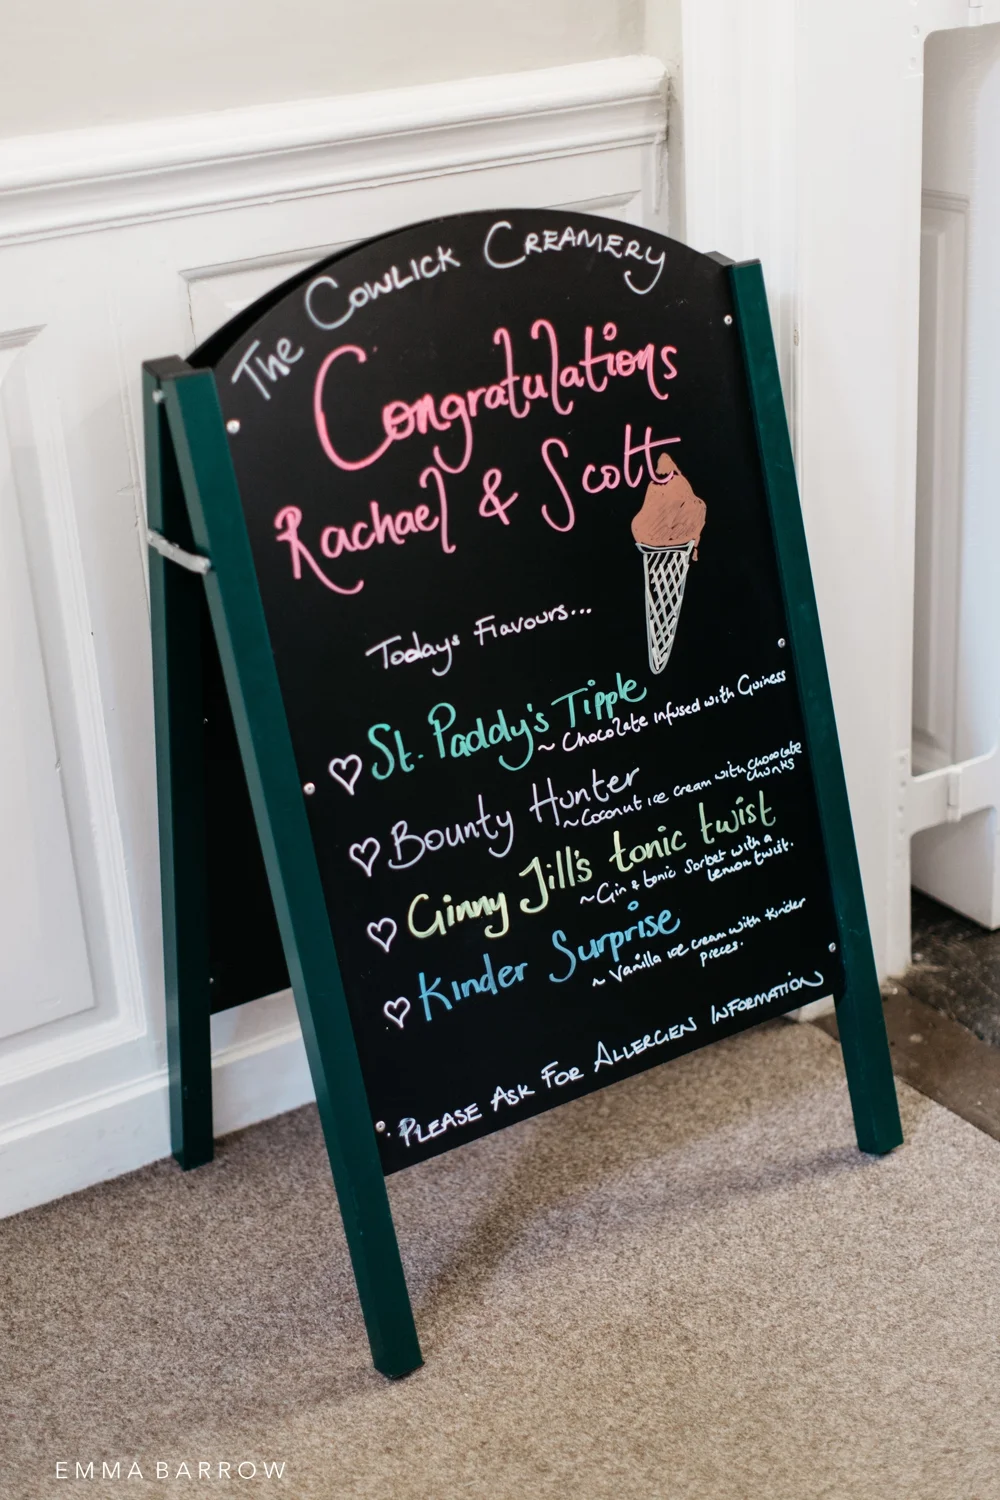 The Cowlick Creamery
Congratulations
Rachael & Scott
Todays Flavours...
♡ St. Paddy's Tipple
~ Chocolate infused with Guiness
♡ Bounty Hunter
~ Coconut ice cream with chocolate
chunks
♡ Ginny Jill's tonic twist
~ Gin & tonic Sorbet with a
lemon twist.
♡ Kinder Surprise
~ Vanilla ice cream with Kinder
pieces.
Please Ask For Allergen Information
EMMA BARROW